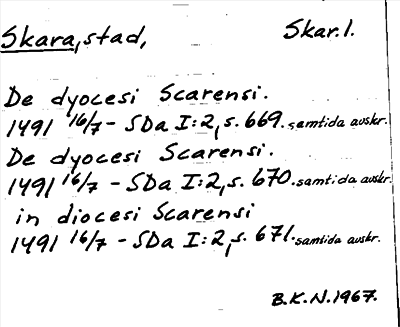 Skara, stad, Skar. l.
De dyocesi Scarensi.
1491 16/7 - SDa I:2, s. 669. samtida avskr.
De dyocesi Scarensi.
1491 16/7 - SDa I:2, s. 670. samtida avskr.
in diocesi Scarensi
1491 16/7 - SDa I:2, s. 671. samtida avskr.
B.K.N. 1967.